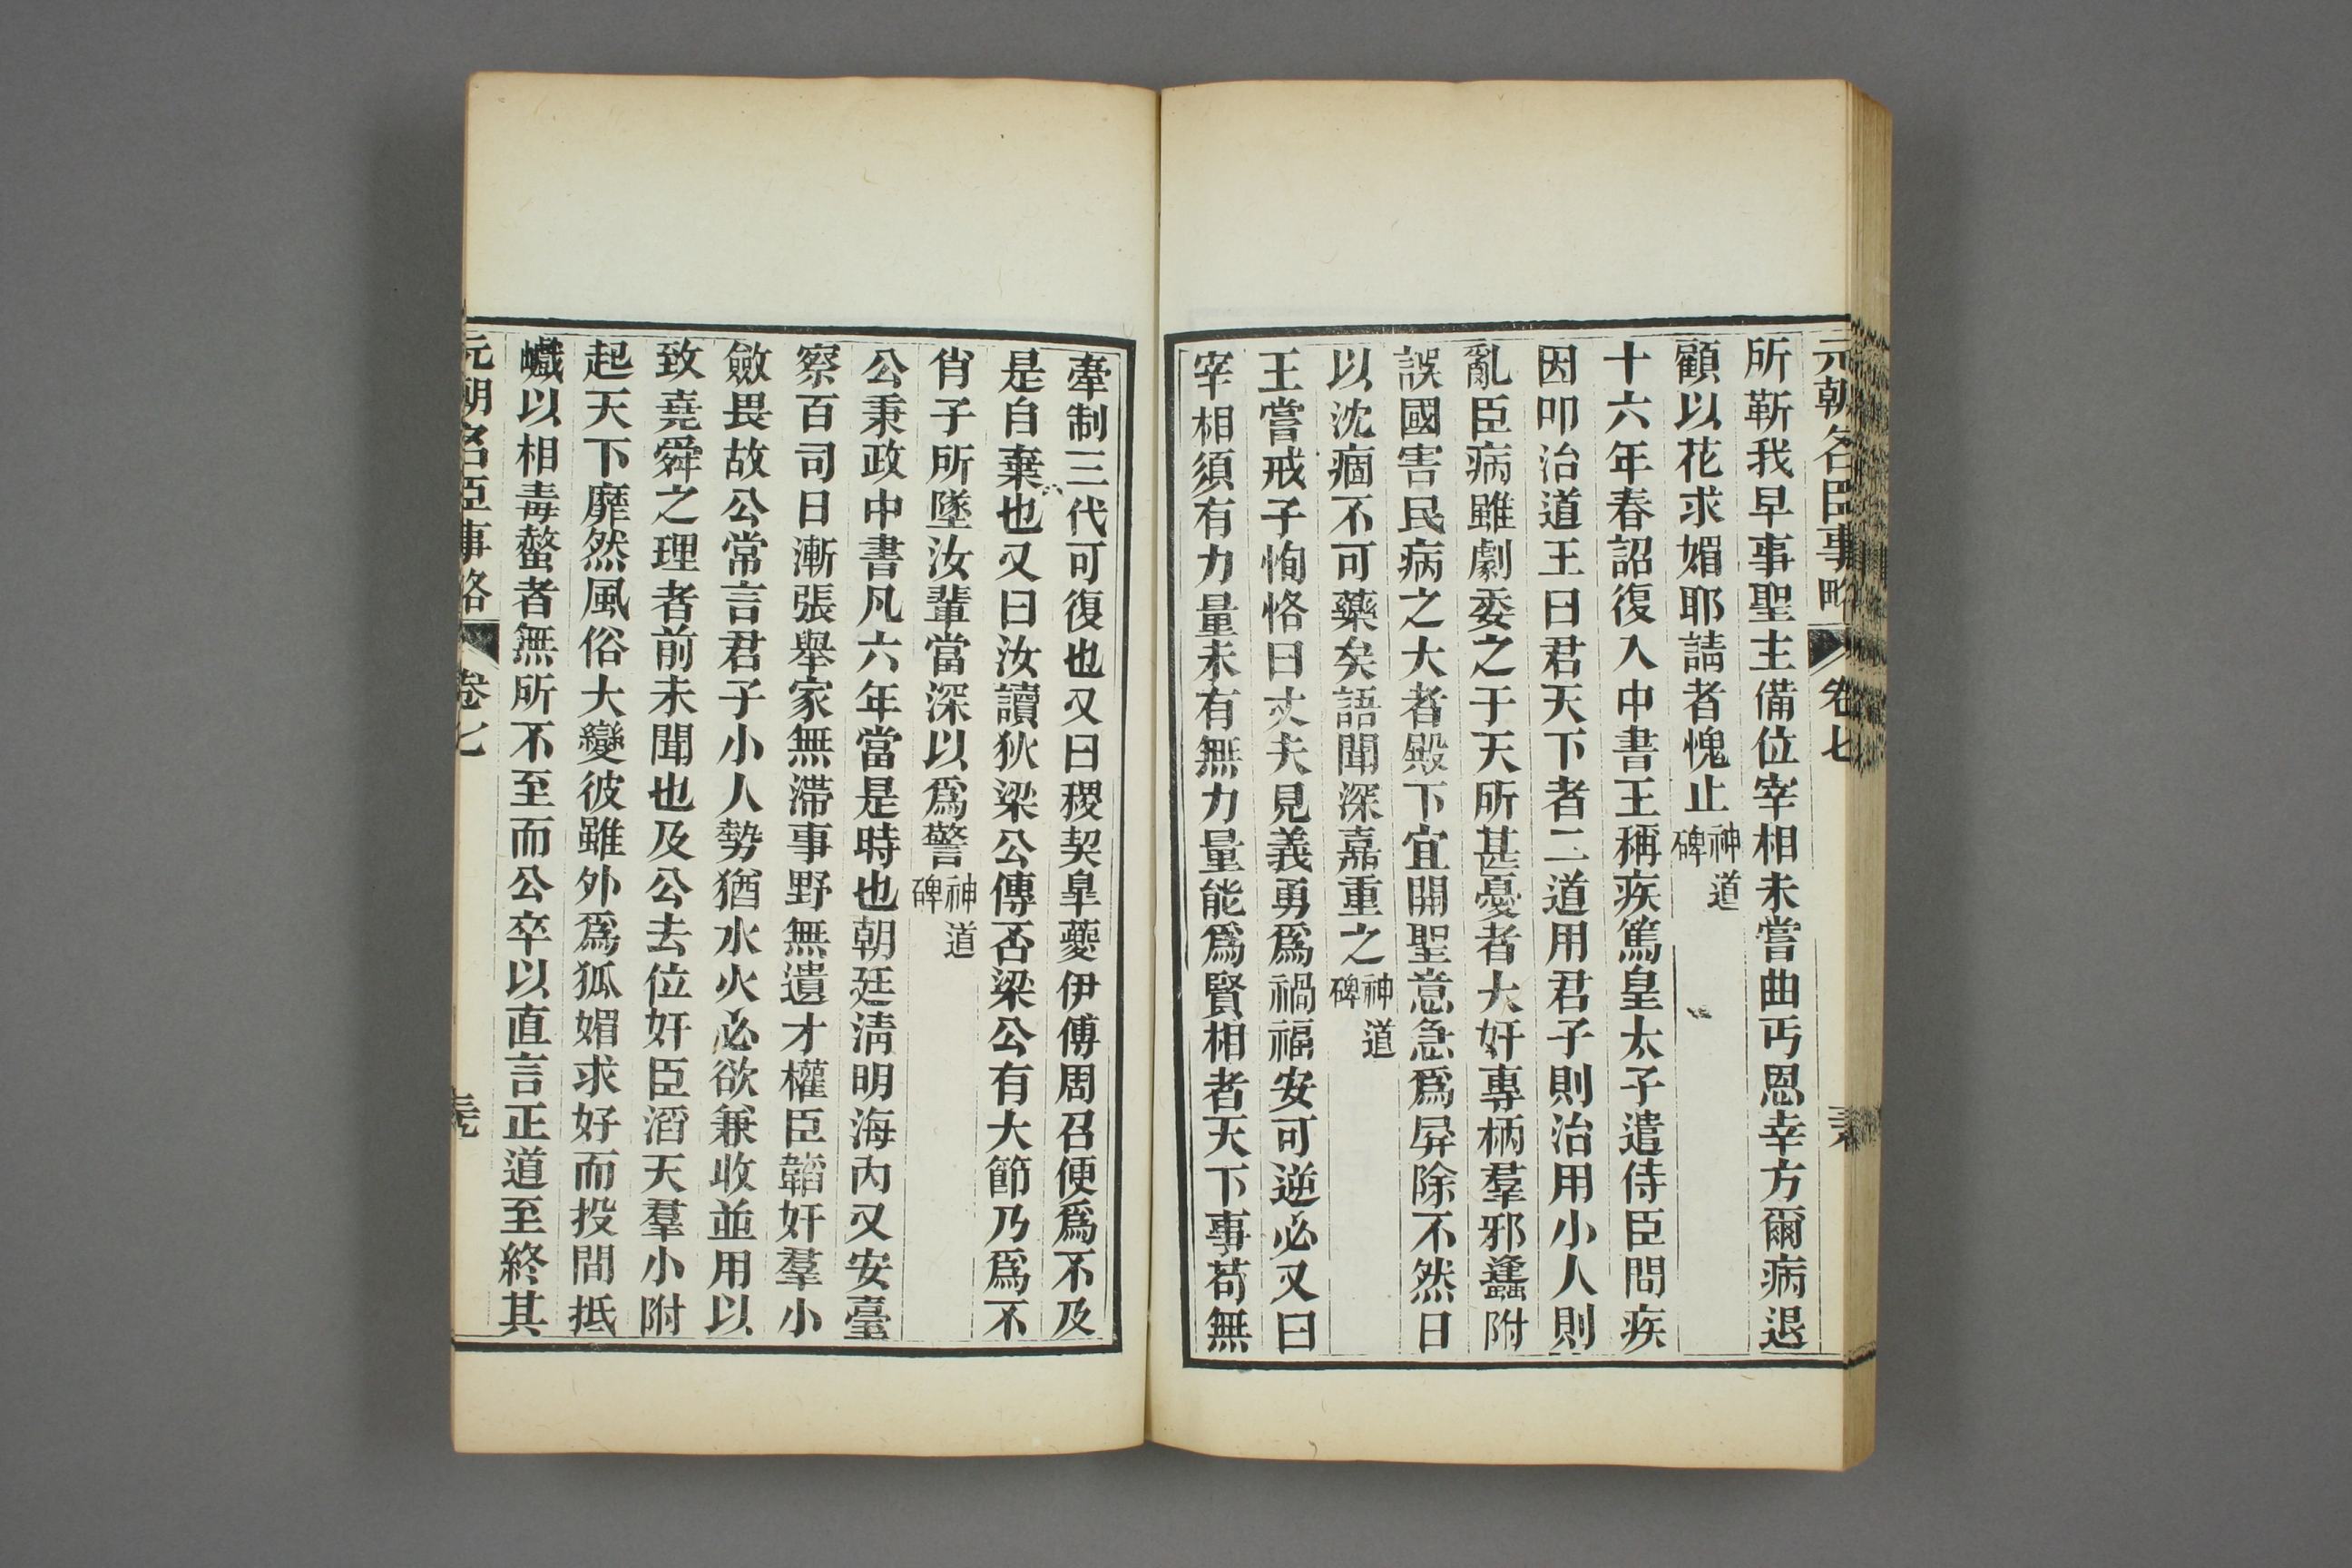 元朝名臣事略 卷七
所靳我早事聖主備位宰相未嘗曲丐恩幸方爾病退
顧以花求媚耶請者愧止神道碑
十六年春詔復入中書王稱疾篤皇太子遣侍臣問疾
因叩治道王曰君天下者二道用君子則治用小人則
亂臣病雖劇委之于天所甚憂者大奸專柄羣邪蠭附
誤國害民病之大者殿下宜開聖意急爲屏除不然日
以沈痼不可藥矣語聞深嘉重之神道碑
王嘗戒子恂恪曰丈夫見義勇爲禍福安可逆必又曰
宰相須有力量未有無力量能爲賢相者天下事苟無
牽制三代可復也又曰稷契臯夔伊傅周召便爲不及
是自棄也又曰汝讀狄梁公傳否梁公有大節乃爲不
肖子所墜汝輩當深以爲警神道碑
公秉政中書凡六年當是時也朝廷淸明海內乂安臺
察百司日漸張舉家無滯事野無遺才權臣韜奸羣小
斂畏故公常言君子小人勢猶水火必欲兼收並用以
致堯舜之理者前未聞也及公去位奸臣滔天羣小附
起天下靡然風俗大變彼雖外爲狐媚求好而投間抵
巇以相毒螫者無所不至而公卒以直言正道至終其
元朝名臣事略 卷七